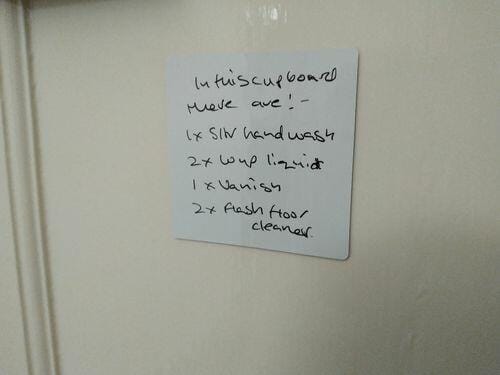 In this cupboard
there are:-
1x handwash
2x liquid
1x Vanish
2x Flash floor
cleaner.